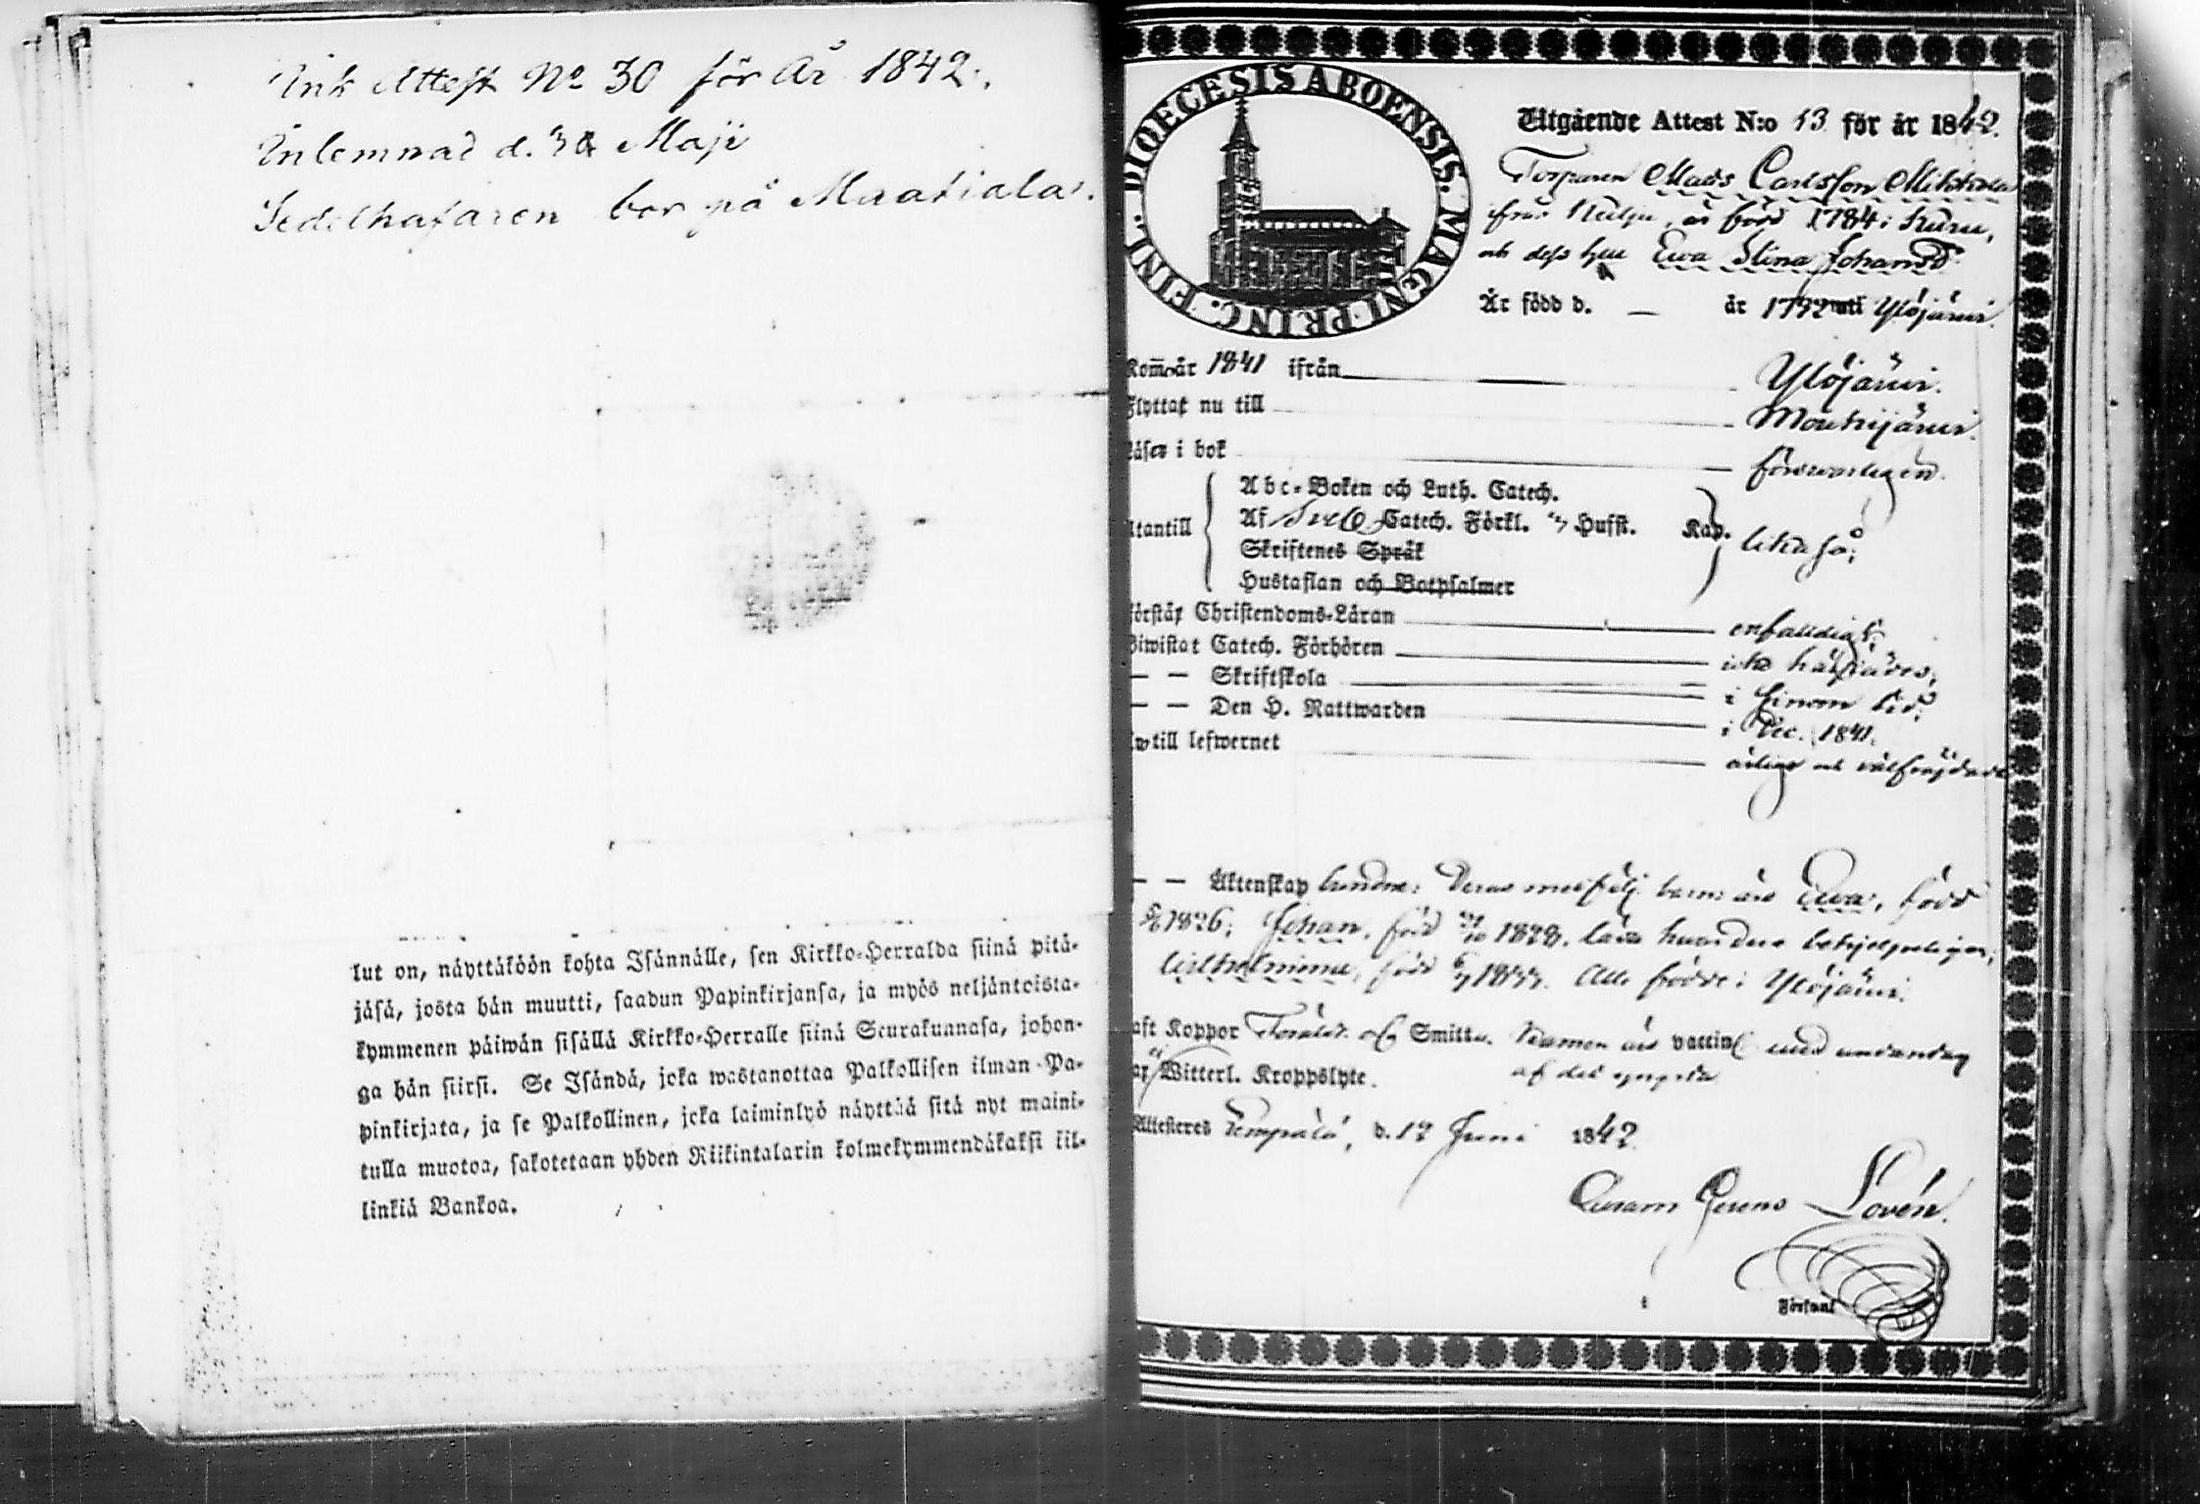 Ink Attest No 30 för År 1842.
Inlemnad d. Maji
Sedelhafaren bor på Maatiala.
lut on, näyttäköön kohta Isännälle, sen Kirkko-Herralda siinä pitä-
jäsä, josta hän muutti, saadun Papinkirjansa, ja myös neljäntoista-
kymmenen päiwän sisällä Kirkko-Herralle siinä Seurakunnasa, johon-
ga hän siirsi. Se Isändä, joka wastanottaa Palkollisen ilman Pa-
pinkirjata, ja se Palkollinen, joka laiminlyö näyttää sitä nyt maini-
tulla muotoa, sakotetaan yhden Riikintalarin kolmekymmendäkaksi kil-
linkiä Bankoa.
DIOECESIS ABOENSIS. MAGNI PRINC. FINL.
Utgående Attest N:o 13 för år 1842.
Torparen Mats Carlsson Mikkola
ifrån född 1784 i Kuru,
och dess hu Ewa Stina Johansd
Är född d. — år 1792 uti Ylöjärwi.
Kom år 1841 ifrån Ylöjärwi.
Flyttat nu till Mouhijärwi.
Läser i bok försvarligen.
Abc-Boken och Luth. Catech.
utantill Af Sveb. Catech. Förkl. Hufst. Kap. likaså;
Skriftenes Språk
Hustaflan och Botpsalmer
förstår Christendoms-Läran enfaldigt;
Biwistat Catech. Förhören icke härstädes;
— — Skriftskola i sinom tid;
— — Den H. Nattwarden i Dec. 1841.
till lefwernet ärlige och välfrejdade
— — Äktenskap bundne: Deras medfölj. barn äro Ewa, född
1826; Johan, född 1828. läsa hvardera behjelpeligen;
Wilhelmina, född Alla födde i Ylöjärwi.
haft Koppor Föräldr. Smitta. Barnen äro vaccin med undantag
Witterl. Kroppslyte. af det yngsta
Attesteras Lempälä, d. 12 Juni 1842
Loven.
Församl